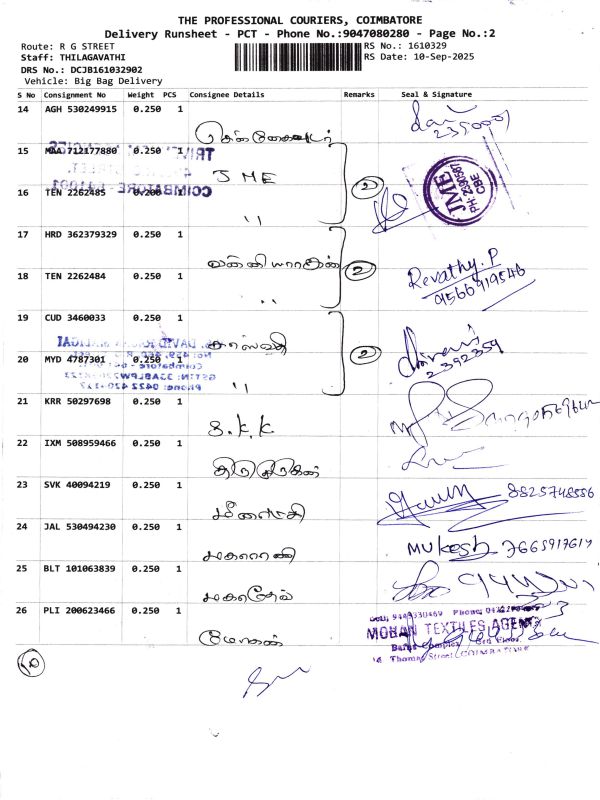 THE PROFESSIONAL COURIERS, COIMBATORE
Delivery Runsheet - PCT - Phone No.:9047080280 - Page No.:2
Route: R G STREET
RS No.: 1610329
Staff: THILAGAVATHI
RS Date: 10-Sep-2025
DRS No.: DCJB161032902
Vehicle: Big Bag Delivery
S No Consignment No Weight PCS Consignee Details Remarks Seal & Signature
14 AGH 530249915 0.250 1
2350001
15 MAA 712177880 0.250 1
JME
JME
PH: 2390587
CBE
16 TEN 2262485 0.200 1
" 2
17 HRD 362379329 0.250 1
Revathy.P
18 TEN 2262484 0.250 1
" 2
9566919546
19 CUD 3460033 0.250 1
2392359
20 MYD 4787301 0.250 1
" 2
21 KRR 50297698 0.250 1
S.K.K
22 IXM 508959466 0.250 1
23 SVK 40094219 0.250 1
மீனாட்சி
8825748556
24 JAL 530494230 0.250 1
மகாராணி
Mukesh 7665917617
25 BLT 101063839 0.250 1
மகாதேவ்
26 PLI 200623466 0.250 1
மோகன்
MOHAN TEXTILES AGENCY
Thomas Street, COIMBATORE
10